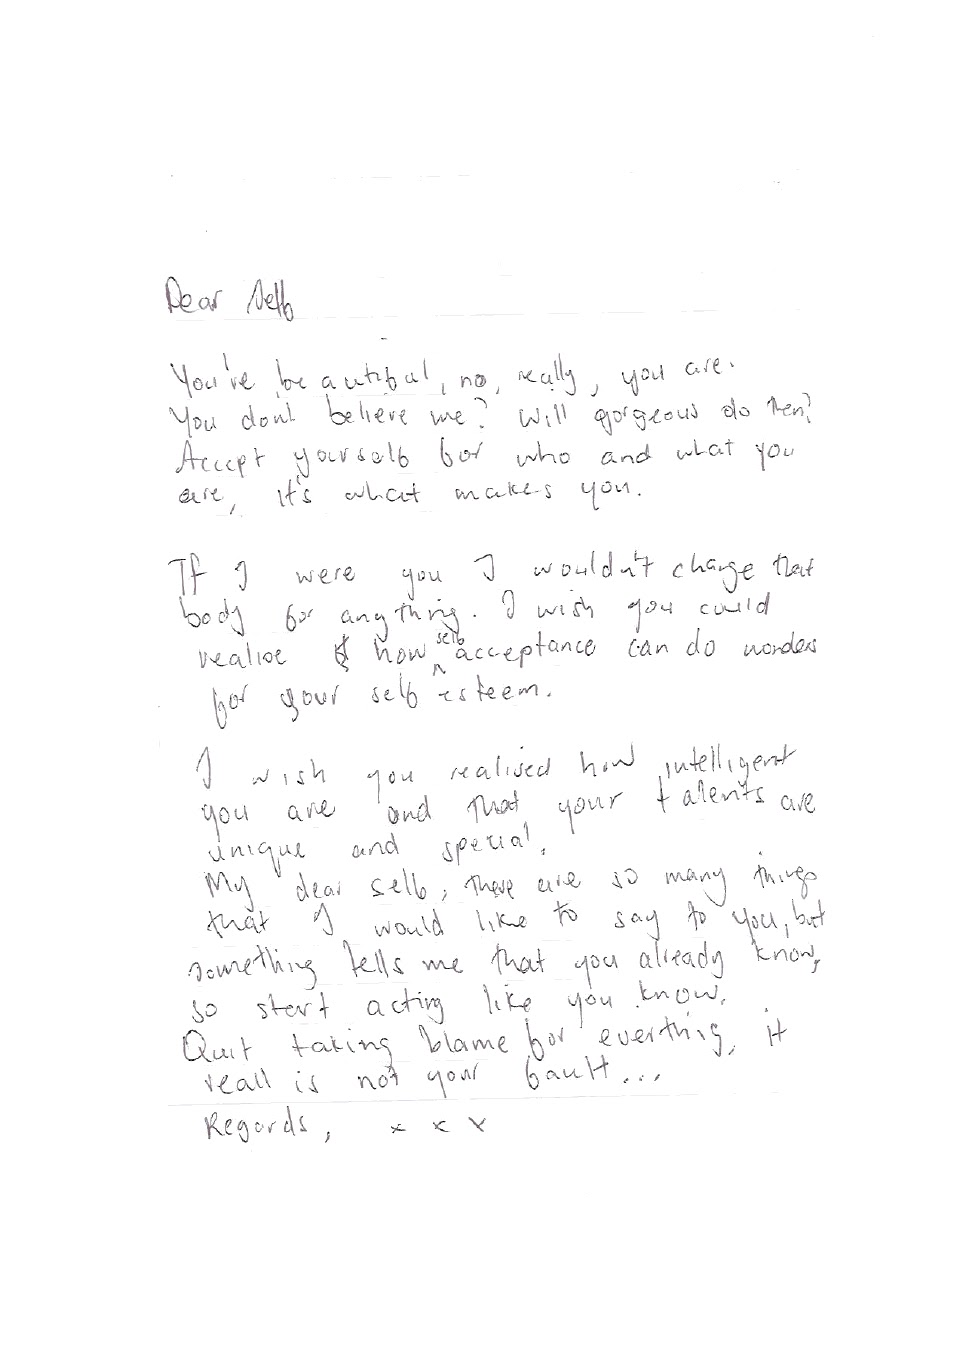 Dear Self
You've beautiful, no, really, you are.
You dont believe me? Will gorgeous do then?
Accept yourself for who and what you
are, it's what makes you.
If I were you I wouldn't change that
body for anything. I wish you could
realise how self acceptance can do wonders
for your self esteem.
I wish you realised how intelligent
you are and that your talents are
unique and special.
My dear self, there are so many things
that I would like to say to you, but
something tells me that you already know,
so start acting like you know.
Quit taking blame for everthing, it
reall is not your fault...
Regards, x x x